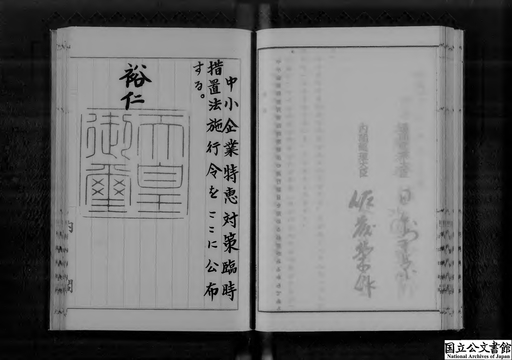 中小企業特恵対策臨時
措置法施行令をここに公布
する。
裕仁
天皇
御璽
内閣
内閣総理大臣
佐藤榮作
国立公文書館
National Archives of Japan